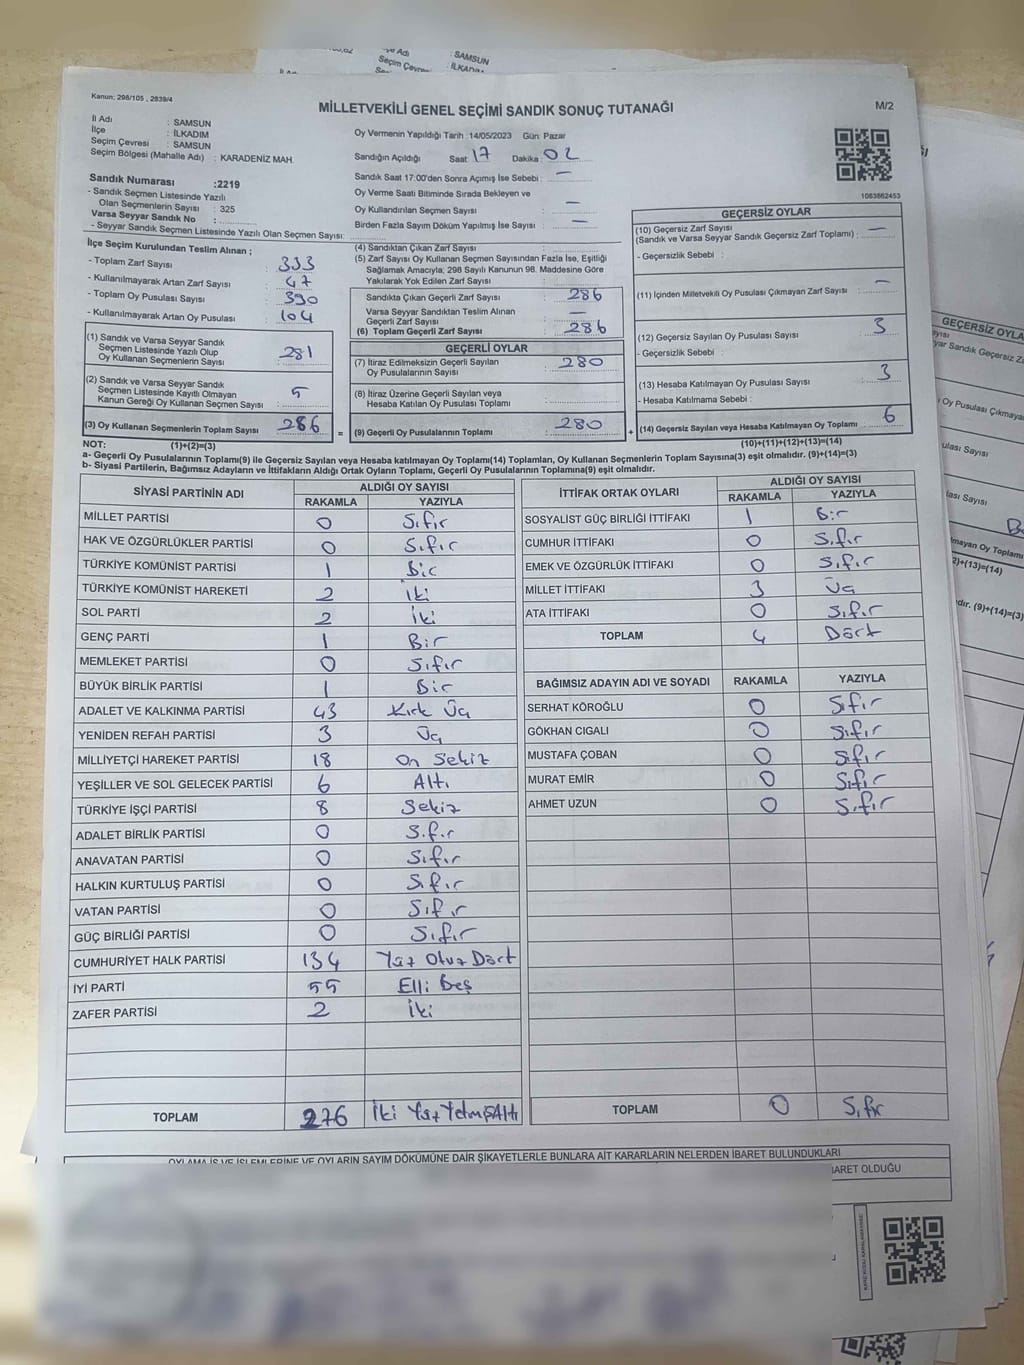 ve Adı
Seçim Çevre
: SAMSUN
: İLKADIM
Kanun: 298/105 , 2839/4
MİLLETVEKİLİ GENEL SEÇİMİ SANDIK SONUÇ TUTANAĞI
M/2
İl Adı : SAMSUN
İlçe : İLKADIM
Seçim Çevresi : SAMSUN
Seçim Bölgesi (Mahalle Adı) : KARADENİZ MAH.
Oy Vermenin Yapıldığı Tarih :14/05/2023 Gün: Pazar
Sandığın Açıldığı Saat: 17 Dakika: 02
Sandık Saat 17:00'den Sonra Açımış İse Sebebi : —
Oy Verme Saati Bitiminde Sırada Bekleyen ve
Oy Kullandırılan Seçmen Sayısı : —
Birden Fazla Sayım Döküm Yapılmış İse Sayısı : —
1083862453
Sandık Numarası :2219
- Sandık Seçmen Listesinde Yazılı
Olan Seçmenlerin Sayısı : 325
Varsa Seyyar Sandık No :
- Seyyar Sandık Seçmen Listesinde Yazılı Olan Seçmen Sayısı:
İlçe Seçim Kurulundan Teslim Alınan ;
- Toplam Zarf Sayısı : 333
- Kullanılmayarak Artan Zarf Sayısı : 47
- Toplam Oy Pusulası Sayısı : 390
- Kullanılmayarak Artan Oy Pusulası : 104
(1) Sandık ve Varsa Seyyar Sandık
Seçmen Listesinde Yazılı Olup
Oy Kullanan Seçmenlerin Sayısı : 281
(2) Sandık ve Varsa Seyyar Sandık
Seçmen Listesinde Kayıtlı Olmayan
Kanun Gereği Oy Kullanan Seçmen Sayısı : 5
(3) Oy Kullanan Seçmenlerin Toplam Sayısı : 286
(4) Sandıktan Çıkan Zarf Sayısı :
(5) Zarf Sayısı Oy Kullanan Seçmen Sayısından Fazla İse, Eşitliği
Sağlamak Amacıyla; 298 Sayılı Kanunun 98. Maddesine Göre
Yakılarak Yok Edilen Zarf Sayısı :
Sandıkta Çıkan Geçerli Zarf Sayısı : 286
Varsa Seyyar Sandıktan Teslim Alınan
Geçerli Zarf Sayısı : —
(6) Toplam Geçerli Zarf Sayısı : 286
GEÇERLİ OYLAR
(7) İtiraz Edilmeksizin Geçerli Sayılan
Oy Pusulalarının Sayısı : 280
(8) İtiraz Üzerine Geçerli Sayılan veya
Hesaba Katılan Oy Pusulası Toplamı :
= (9) Geçerli Oy Pusulalarının Toplamı : 280 +
GEÇERSİZ OYLAR
(10) Geçersiz Zarf Sayısı
(Sandık ve Varsa Seyyar Sandık Geçersiz Zarf Toplamı) : —
- Geçersizlik Sebebi :
(11) İçinden Milletvekili Oy Pusulası Çıkmayan Zarf Sayısı : —
(12) Geçersiz Sayılan Oy Pusulası Sayısı : 3
- Geçersizlik Sebebi :
(13) Hesaba Katılmayan Oy Pusulası Sayısı : 3
- Hesaba Katılmama Sebebi :
(14) Geçersiz Sayılan veya Hesaba Katılmayan Oy Toplamı : 6
NOT: (1)+(2)=(3)
(10)+(11)+(12)+(13)=(14)
a- Geçerli Oy Pusulalarının Toplamı(9) ile Geçersiz Sayılan veya Hesaba katılmayan Oy Toplamı(14) Toplamları, Oy Kullanan Seçmenlerin Toplam Sayısına(3) eşit olmalıdır. (9)+(14)=(3)
b- Siyasi Partilerin, Bağımsız Adayların ve İttifakların Aldığı Ortak Oyların Toplamı, Geçerli Oy Pusulalarının Toplamına(9) eşit olmalıdır.
SİYASİ PARTİNİN ADI ALDIĞI OY SAYISI
RAKAMLA YAZIYLA
MİLLET PARTİSİ 0 Sıfır
HAK VE ÖZGÜRLÜKLER PARTİSİ 0 Sıfır
TÜRKİYE KOMÜNİST PARTİSİ 1 Bir
TÜRKİYE KOMÜNİST HAREKETİ 2 İki
SOL PARTİ 2 İki
GENÇ PARTİ 1 Bir
MEMLEKET PARTİSİ 0 Sıfır
BÜYÜK BİRLİK PARTİSİ 1 Bir
ADALET VE KALKINMA PARTİSİ 43 Kırk Üç
YENİDEN REFAH PARTİSİ 3 Üç
MİLLİYETÇİ HAREKET PARTİSİ 18 On Sekiz
YEŞİLLER VE SOL GELECEK PARTİSİ 6 Altı
TÜRKİYE İŞÇİ PARTİSİ 8 Sekiz
ADALET BİRLİK PARTİSİ 0 Sıfır
ANAVATAN PARTİSİ 0 Sıfır
HALKIN KURTULUŞ PARTİSİ 0 Sıfır
VATAN PARTİSİ 0 Sıfır
GÜÇ BİRLİĞİ PARTİSİ 0 Sıfır
CUMHURİYET HALK PARTİSİ 134 Yüz Otuz Dört
İYİ PARTİ 55 Elli Beş
ZAFER PARTİSİ 2 İki
TOPLAM 276 İki Yüz Yetmiş Altı
İTTİFAK ORTAK OYLARI ALDIĞI OY SAYISI
RAKAMLA YAZIYLA
SOSYALİST GÜÇ BİRLİĞİ İTTİFAKI 1 Bir
CUMHUR İTTİFAKI 0 Sıfır
EMEK VE ÖZGÜRLÜK İTTİFAKI 0 Sıfır
MİLLET İTTİFAKI 3 Üç
ATA İTTİFAKI 0 Sıfır
TOPLAM 4 Dört
BAĞIMSIZ ADAYIN ADI VE SOYADI RAKAMLA YAZIYLA
SERHAT KÖROĞLU 0 Sıfır
GÖKHAN CIGALI 0 Sıfır
MUSTAFA ÇOBAN 0 Sıfır
MURAT EMİR 0 Sıfır
AHMET UZUN 0 Sıfır
TOPLAM 0 Sıfır
OYLAMA İŞ VE İŞLEMLERİNE VE OYLARIN SAYIM DÖKÜMÜNE DAİR ŞİKAYETLERLE BUNLARA AİT KARARLARIN NELERDEN İBARET BULUNDUKLARI
BARET OLDUĞU
GEÇERSİZ OYLA
yısı
yar Sandık Geçersiz Za
Oy Pusulası Çıkmaya
ulası Sayısı
lası Sayısı
lmayan Oy Toplamı
2)+(13)=(14)
dır. (9)+(14)=(3)